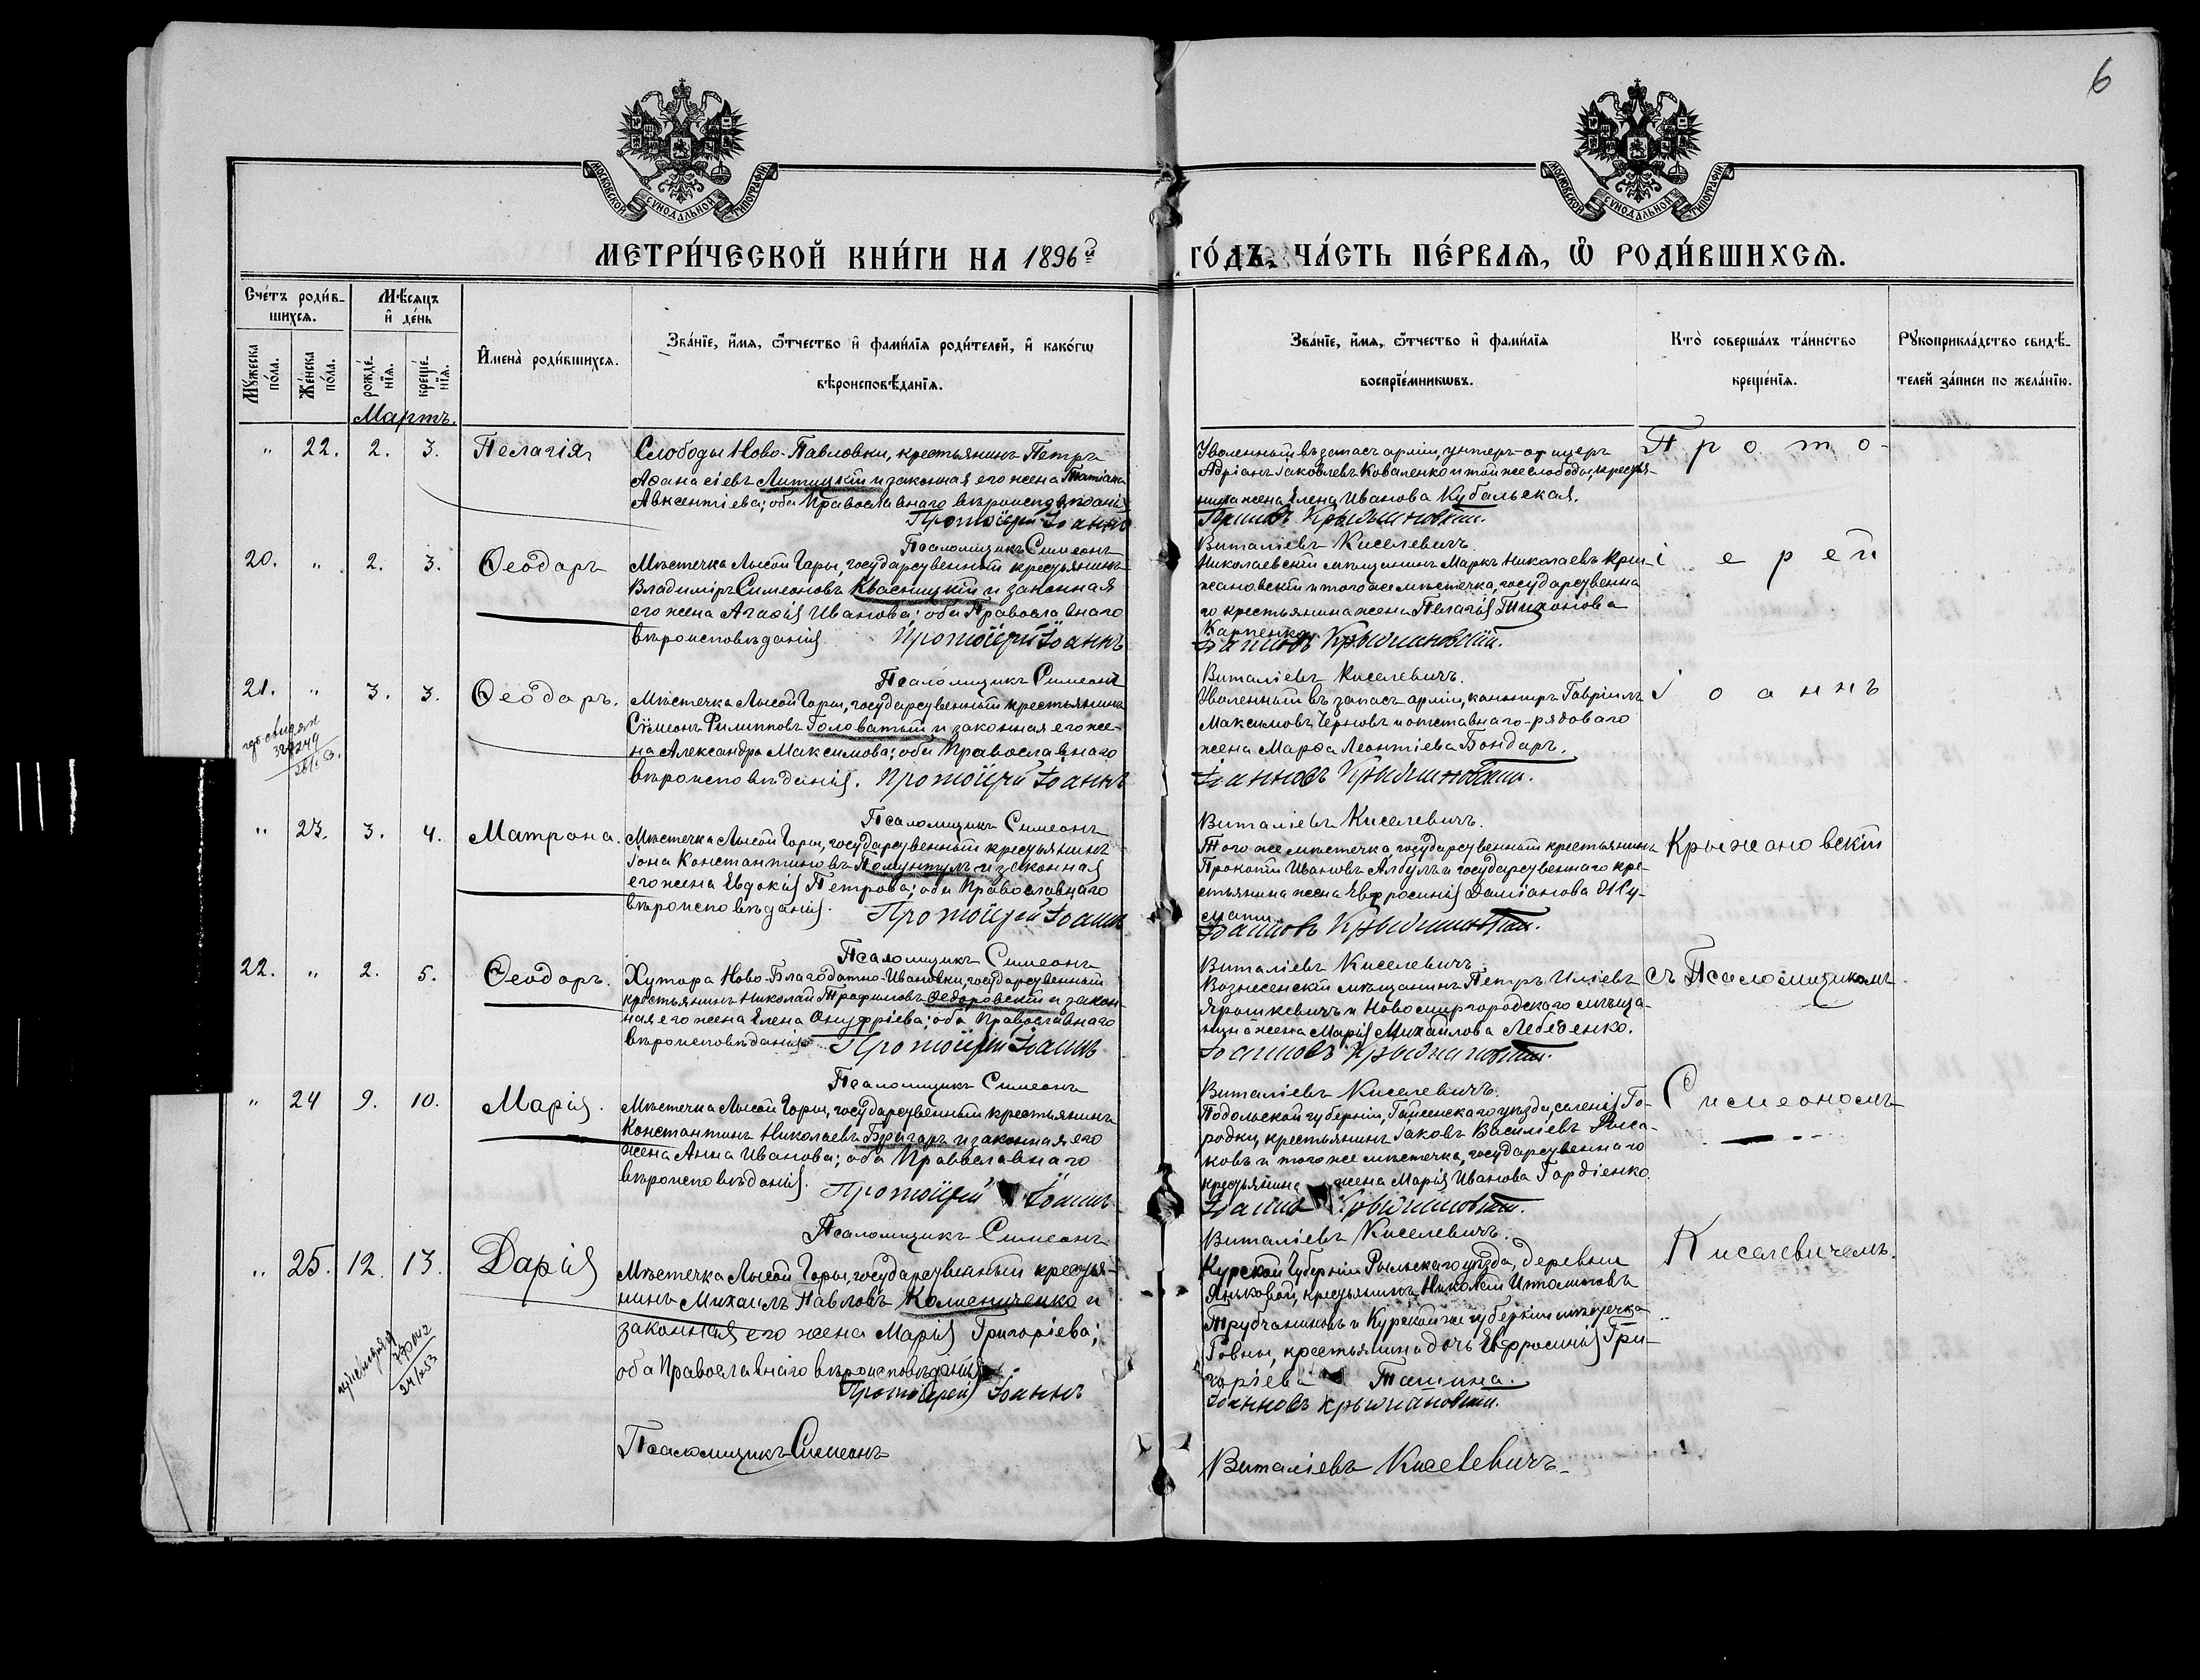 6
МОСКОВСКОЙ СѴНОДАЛЬНОЙ ТИПОГРАФІИ
МОСКОВСКОЙ СѴНОДАЛЬНОЙ ТИПОГРАФІИ
МЕТРИ́ЧЕСКОЙ КНИ́ГИ НА 1896й ГО́ДЪ, ЧА́СТЬ ПЕ́РВАѦ, Ѽ РОДИ́ВШИХСѦ.
Сче́тъ роди́в-
шихсѧ.
Мꙋ́жеска по́ла.
Же́нска по́ла.
Мѣ́сѧцъ
и҆ де́нь
рожде́-
нїѧ.
креще́-
нїѧ.
И҆мена̀ роди́вшихсѧ.
Зва́нїе, и҆́мѧ, ѻ҆́тчество и҆ фами́лїѧ роди́телей, и҆ како́гѡ
вѣроисповѣ́данїѧ.
Зва́нїе, и҆́мѧ, ѻ҆́тчество и҆ фами́лїѧ
воспрїе́мникѡвъ.
Кто̀ соверша́лъ та́инство
креще́нїѧ.
Рꙋкоприкла́дство свидѣ́-
телей за́писи по жела́нїю.
Мартъ.
" 22. 2. 3. Пелагія
Слободы Ново-Павловки, крестьянинъ Петръ
Аѳанасіевъ Липицкій и законная его жена Татіана
Авксентіева; оба Православнаго вѣроисповѣданія
Протоіерей Іоаннъ
Псаломщикъ Симеонъ
Уволенный въ запасъ арміи, унтеръ-офицеръ
Адріанъ Іаковлевъ Коваленко и той же слободы, крестья-
нина жена Елена Иванова Кубальская.
Крыжановскій.
Виталіевъ Киселевичъ.
Прото-
20. " 2. 3. Ѳеодоръ
Мѣстечка Лысой Горы, государственный крестьянинъ
Владиміръ Симеоновъ Квасницкій и законная
его жена Агаѳія Иванова; оба Православнаго
вѣроисповѣданія Протоіерей Іоаннъ
Псаломщикъ Симеонъ
Николаевскій мѣщанинъ Маркъ Николаевъ Кры-
жановскій и того же мѣстечка, государственна
го крестьянина жена Пелагія Тихонова
Карпенко
Іоанновъ Крыжановскій.
Виталіевъ Киселевичъ.
іерей
21. " 3. 3. Ѳеодоръ.
Мѣстечка Лысой Горы, государственный крестьянинъ
Сѵмеонъ Филипповъ Головатый и законная его же-
на Александра Максимова; оба Православнаго
вѣроисповѣданія. Протоіерей Іоаннъ
Псаломщикъ Симеонъ
Уволенный въ запасъ арміи, канониръ Гавріилъ
Максимовъ Черновъ и отставнаго-рядоваго
жена Марѳа Леонтіева Бондарь.
Іоанновъ Крыжановскій.
Виталіевъ Киселевичъ.
Іоаннъ
" 23. 3. 4. Матрона.
Мѣстечка Лысой Горы, государственный крестьянинъ
Іона Константиновъ и законная
его жена Евдокія Петрова; оба Православнаго
вѣроисповѣданія. Протоіерей Іоаннъ
Псаломщикъ Симеонъ
Того же мѣстечка, государственный крестьянинъ
Прокопій Ивановъ Албулъ и государственнаго кре-
стьянина жена Евфросинія Даміанова
Іоанновъ Крыжановскій.
Виталіевъ Киселевичъ
Крыжановскій
22. " 2. 5. Ѳеодоръ.
Хутора Ново-Благодатно-Ивановки, государственный
крестьянинъ Николай Трофимовъ Ѳедоровскій и закон-
ная его жена Елена Онуфріева; оба Православнаго
вѣроисповѣданія Протоіерей Іоаннъ
Псаломщикъ Симеонъ
Вознесенскій мѣщанинъ Петръ Иліевъ
Ярошкевичъ и Новомиргородскаго мѣща-
нина жена Марія Михайлова Лебеденко.
Іоанновъ Крыжановскій.
Виталіевъ Киселевичъ.
съ Псаломщикомъ
" 24 9. 10. Марія.
Мѣстечка Лысой Горы, государственный крестьянинъ
Константинъ Николаевъ Бригаръ и законная его
жена Анна Иванова; оба Православнаго
вѣроисповѣданія. Протоіерей Іоаннъ
Псаломщикъ Симеонъ
Подольской губерніи, Гайсенскаго уѣзда, селенія Го-
родки, крестьянинъ Іаковъ Василіевъ
ковъ и того же мѣстечка, государственнаго
крестьянина жена Марія Иванова Гордіенко.
Крыжановскій.
Виталіевъ Киселевичъ.
Симеономъ
" 25. 12. 13. Дарія
Мѣстечка Лысой Горы, государственный крестья-
нинъ Михаилъ Павловъ Коломниченко и
законная его жена Марія Григоріева;
оба Православнаго вѣроисповѣданія
Протоіерей Іоаннъ
Псаломщикъ Симеонъ
Курской Губерніи Рыльскаго уѣзда, деревни
Яньковой, крестьянинъ Николай
Трубчаниновъ и Курской же губерніи мѣстечка
Ровны, крестьянина дочь Евфросинія Гри-
горіева
Іоанновъ Крыжановскій.
Виталіевъ Киселевичъ
Киселевичемъ.